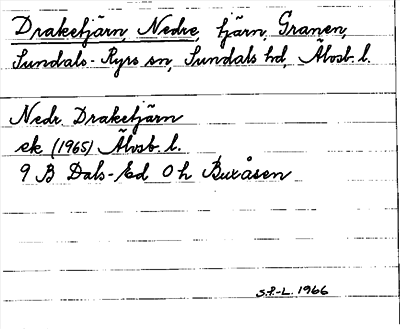 Draketjärn, Nedre, tjärn, Granen,
Sundals-Ryrs sn, Sundals hd, Älvsb. l.
Nedr. Draketjärn
ek (1965) Älvsb. l.
9 B Dals-Ed 0 h Buxåsen
S.P.-L. 1966